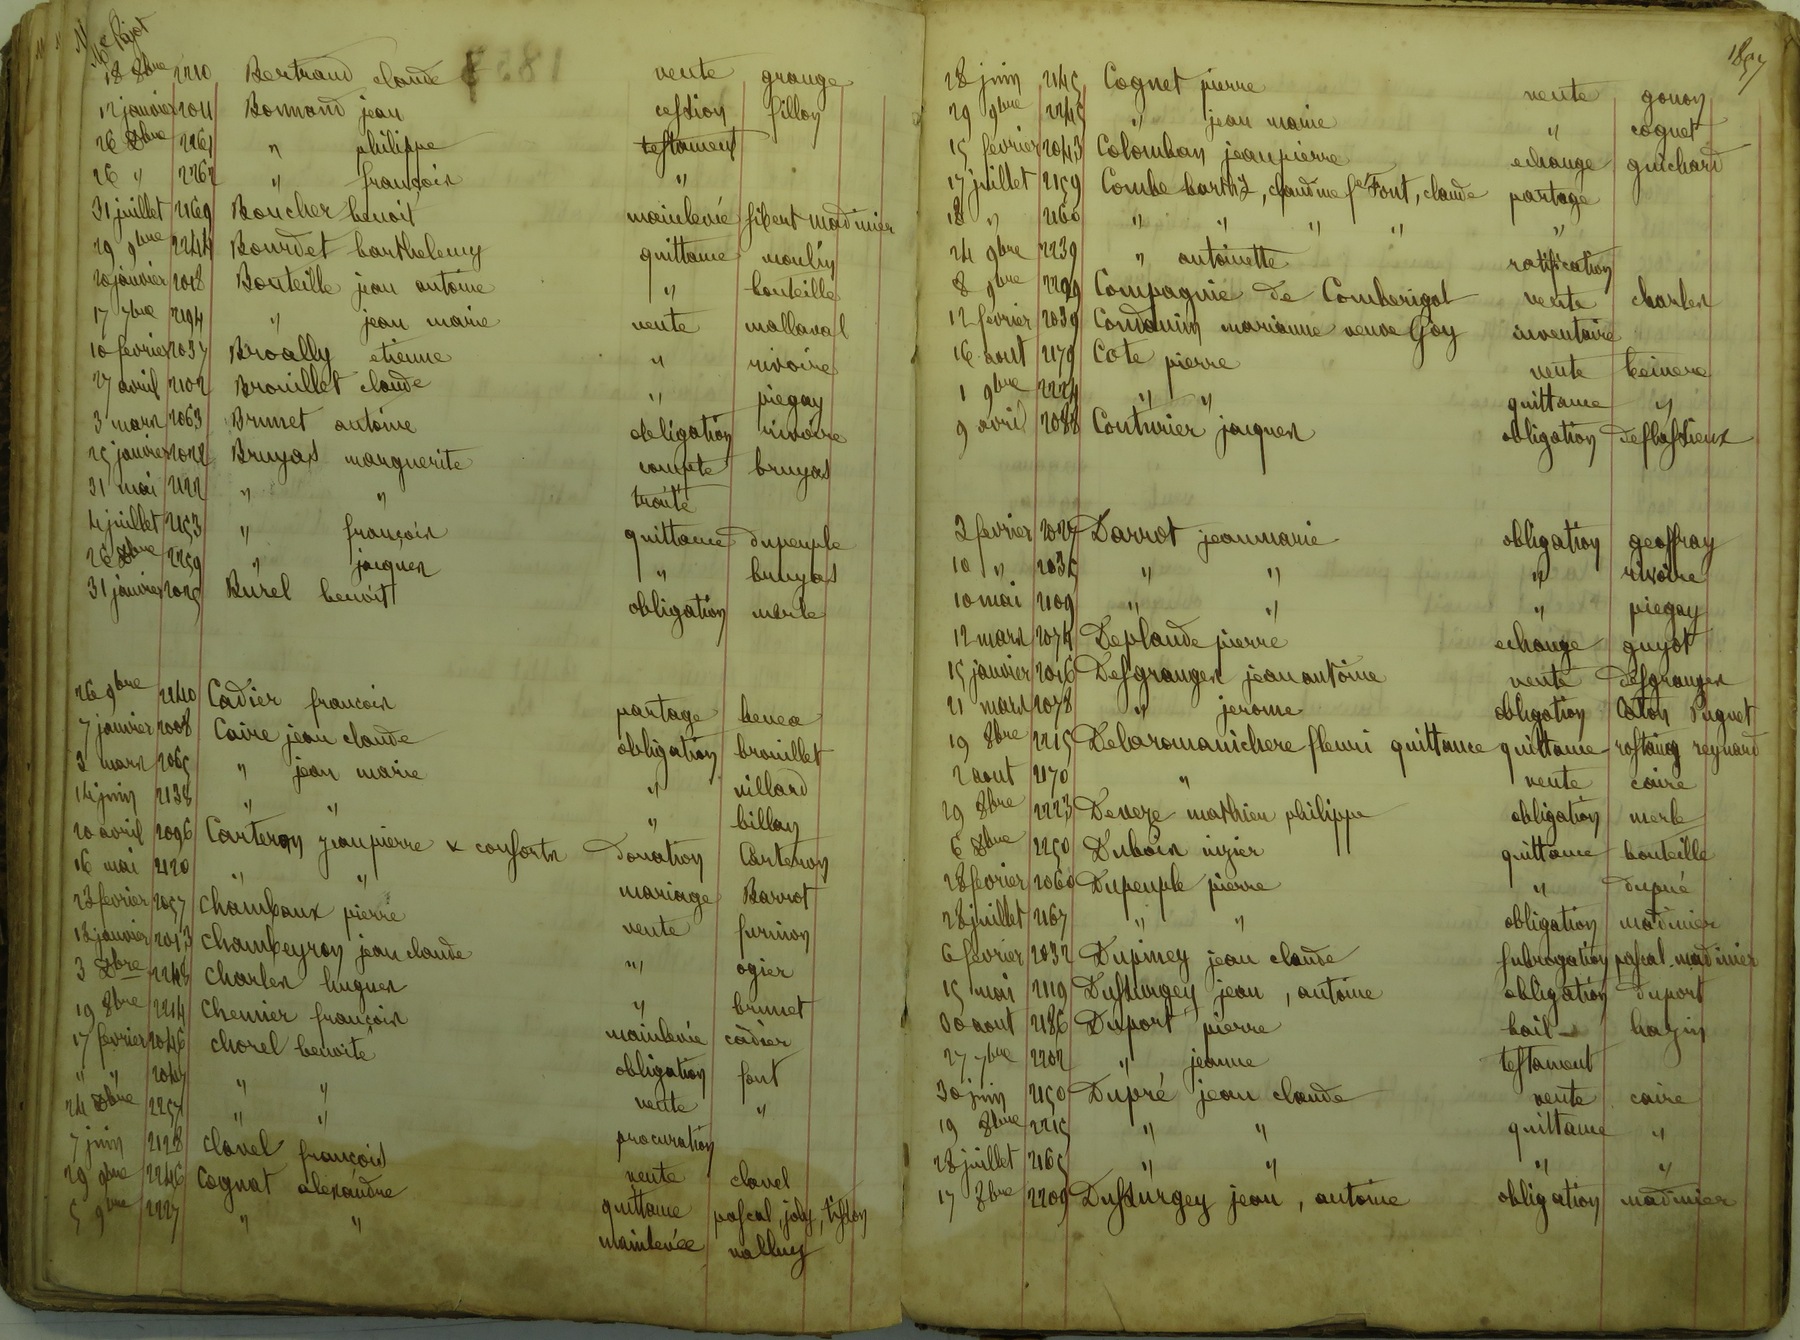 Me Pajot
18 8bre 2210 Bertrand claude vente grange
12 janvier 2011 Bonnand jean cession fillon
26 Xbre 2261 " philippe testament
26 " 2262 " françois "
31 juillet 2169 Boucher benoit mainlevée gibert madinier
29 9bre 2244 Bourdet barthelemy quittance moulin
20 janvier 2018 Bouteille jean antoine " bouteille
17 7bre 2194 " jean marie vente mallaval
10 fevrier 2037 Broally etienne " rivoire
27 avril 2102 Brouillet claude " piegay
3 mars 2063 Brunet antoine obligation rivoire
25 janvier 2022 Bruyas marguerite compte bruyas
31 mai 2122 " " traité
4 juillet 2153 " françois quittance dupeuple
26 Xbre 2259 " jacques " bruyas
31 janvier 2025 Burel benoit obligation merle
26 9bre 2240 Cadier francois partage benea
7 janvier 2008 Caire jean claude obligation brouillet
3 mars 2065 " jean marie " villard
14 juin 2138 " " " billay
20 avril 2096 Carteron jean pierre & consorts donation Carteron
16 mai 2120 " " mariage Barrot
23 fevrier 2057 chambaux pierre vente furinon
13 janvier 2013 chambeyron jean claude " ogier
3 Xbre 2248 charles hugues " brunet
19 8bre 2214 chennier françois mainlevée cadier
17 fevrier 2046 chorel benoite obligation font
" " 2047 " " vente "
24 Xbre 2257 " " procuration
7 juin 2128 clavel françois vente clavel
29 9bre 2246 Cognat alexandre quittance pascal, joly, tisson
5 9bre 2227 " " mainlevée valluy
1857
28 juin 2145 Cognet pierre vente gonon
29 9bre 2245 " jean marie " cognet
15 fevrier 2043 Colomban jean pierre echange guichard
17 juillet 2159 Combe barthy, claudine fe Font, claude partage
18 " 2160 " " " " "
24 9bre 2239 " antoinette ratification
8 9bre 2229 Compagnie de Comberigol vente charles
12 fevrier 2039 Condamin marianne veuve Goy inventaire
16 aout 2179 Cote pierre vente beinere
1 9bre 2224 " " quittance "
9 avril 2088 Couturier jacques obligation deflassieux
3 fevrier 2027 Darrot jean marie obligation geoffray
10 " 2035 " " " rivoire
10 mai 2109 " " " piegay
12 mars 2074 Deplaude pierre echange guyot
15 janvier 2016 Desgranges jean antoine vente desgranges
21 mars 2078 " jerome obligation Coton Puguet
19 8bre 2215 Delaromanichere fleuri quittance quittance rostaing reynard
2 aout 2170 " vente caire
29 8bre 2223 Deveze mathieu philippe obligation merle
6 Xbre 2250 Dubois nizier quittance bouteille
28 fevrier 2060 Dupeuple pierre " dupré
28 juillet 2167 " " obligation madinier
6 fevrier 2032 Dupiney jean claude subrogation pascal madinier
15 mai 2119 Dussurgey jean, antoine obligation duport
30 aout 2186 Duport pierre bail hazin
27 7bre 2202 " jeanne testament
30 juin 2150 Dupré jean claude vente caire
19 8bre 2215 " " quittance "
28 juillet 2165 " " " "
17 8bre 2209 Dussurgey jean, antoine obligation madinier